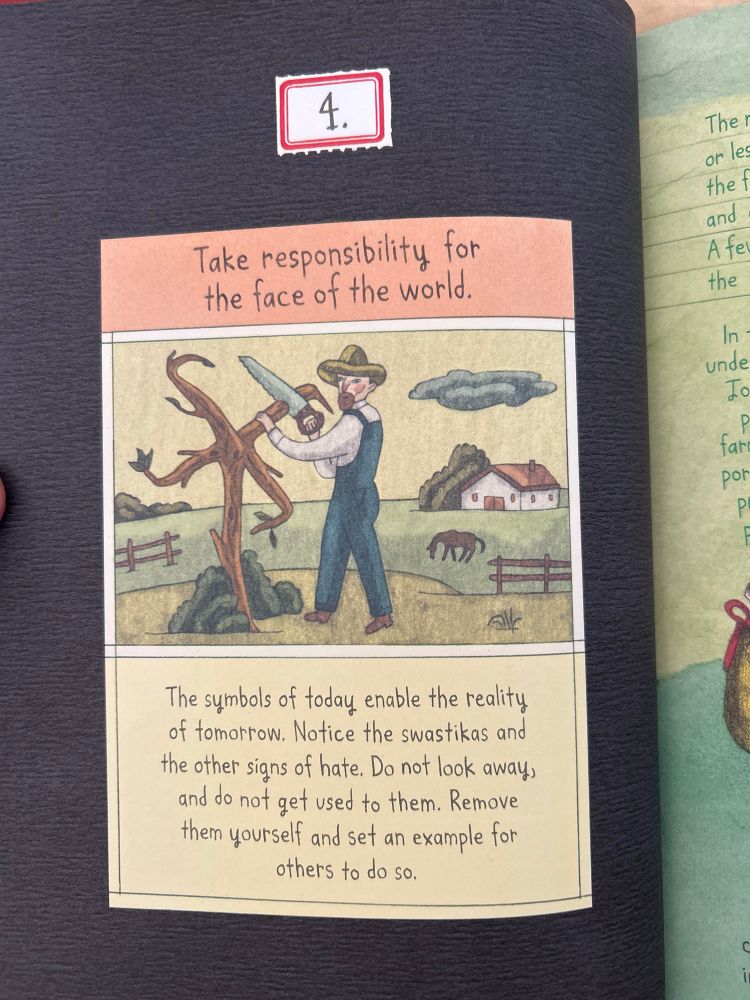 4.
Take responsibility for
the face of the world.
The symbols of today enable the reality
of tomorrow. Notice the swastikas and
the other signs of hate. Do not look away,
and do not get used to them. Remove
them yourself and set an example for
others to do so.
The
or
the
and
A
the
In